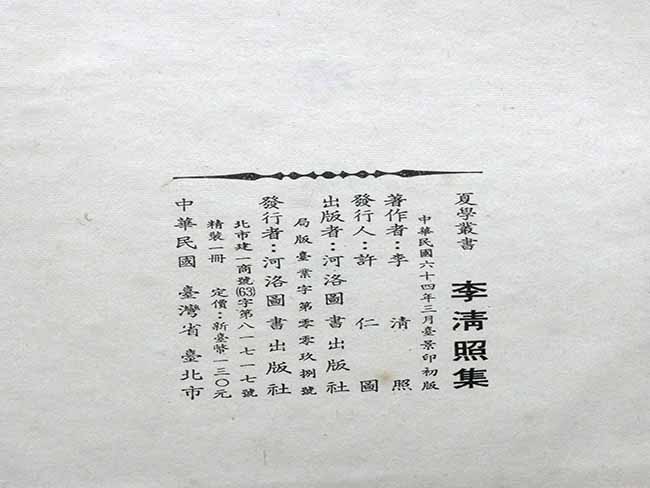 夏學叢書 李清照集
中華民國六十四年三月臺景印初版
著作者：李清照
發行人：許仁圖
出版者：河洛圖書出版社
局版臺業字第零零玖捌號
發行者：河洛圖書出版社
北市建一商號(63)字第八一七一七號
精裝一冊 定價：新臺幣一三〇元
中華民國 臺灣省 臺北市